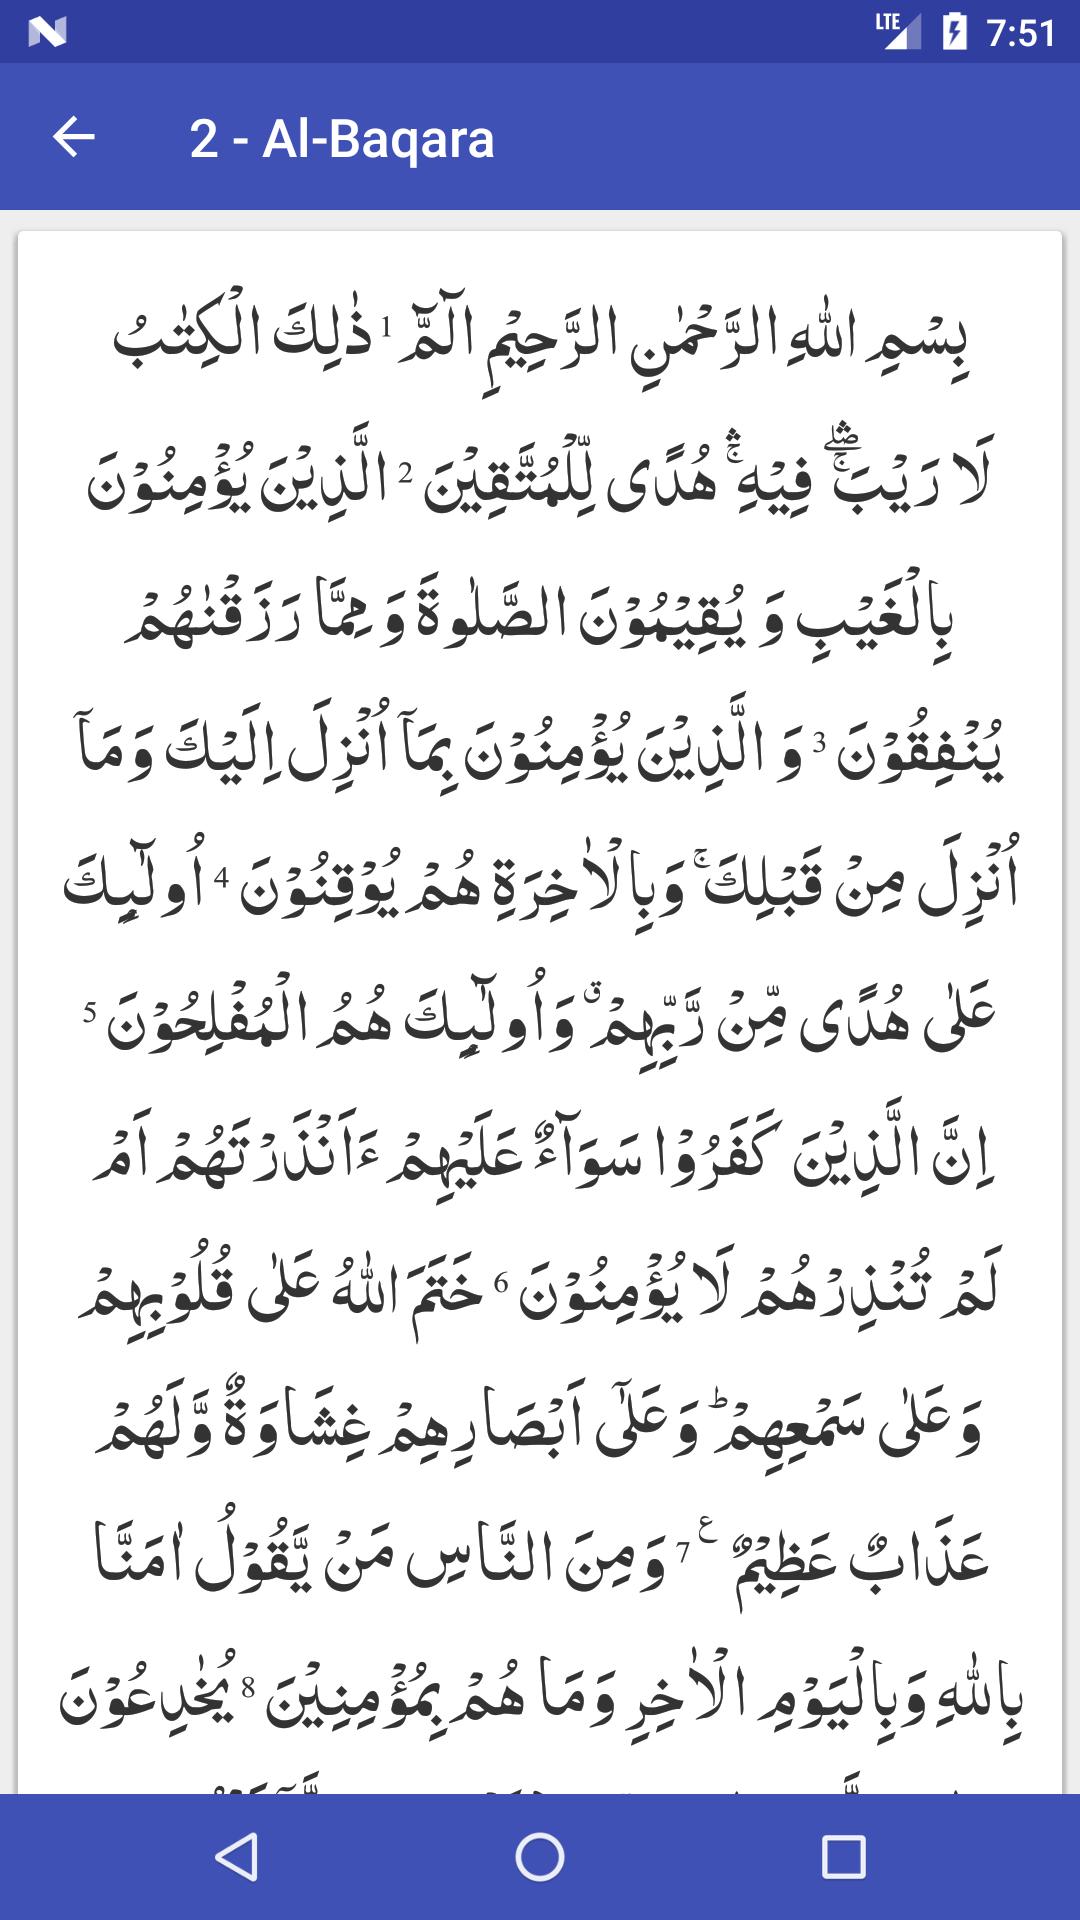 LTE 7:51
2 - Al-Baqara
بِسْمِ اللّٰهِ الرَّحْمٰنِ الرَّحِيْمِ الٓمّٓ 1 ذٰلِكَ الْكِتٰبُ
لَا رَيْبَ ۛۖۚ فِيْهِ ۛۚ هُدًى لِّلْمُتَّقِيْنَ 2 الَّذِيْنَ يُؤْمِنُوْنَ
بِالْغَيْبِ وَ يُقِيْمُوْنَ الصَّلٰوةَ وَ مِمَّا رَزَقْنٰهُمْ
يُنْفِقُوْنَ 3 وَ الَّذِيْنَ يُؤْمِنُوْنَ بِمَآ اُنْزِلَ اِلَيْكَ وَمَآ
اُنْزِلَ مِنْ قَبْلِكَ ۚ وَبِالْاٰخِرَةِ هُمْ يُوْقِنُوْنَ 4 اُولٰٓئِكَ
عَلٰى هُدًى مِّنْ رَّبِّهِمْ ۤق وَاُولٰٓئِكَ هُمُ الْمُفْلِحُوْنَ 5
اِنَّ الَّذِيْنَ كَفَرُوْا سَوَآءٌ عَلَيْهِمْ ءَاَنْذَرْتَهُمْ اَمْ
لَمْ تُنْذِرْهُمْ لَا يُؤْمِنُوْنَ 6 خَتَمَ اللّٰهُ عَلٰى قُلُوْبِهِمْ
وَعَلٰى سَمْعِهِمْ ؕ وَعَلٰٓى اَبْصَارِهِمْ غِشَاوَةٌ وَّلَهُمْ
عَذَابٌ عَظِيْمٌ ع 7 وَمِنَ النَّاسِ مَنْ يَّقُوْلُ اٰمَنَّا
بِاللّٰهِ وَبِالْيَوْمِ الْاٰخِرِ وَمَا هُمْ بِمُؤْمِنِيْنَ 8 يُخٰدِعُوْنَ